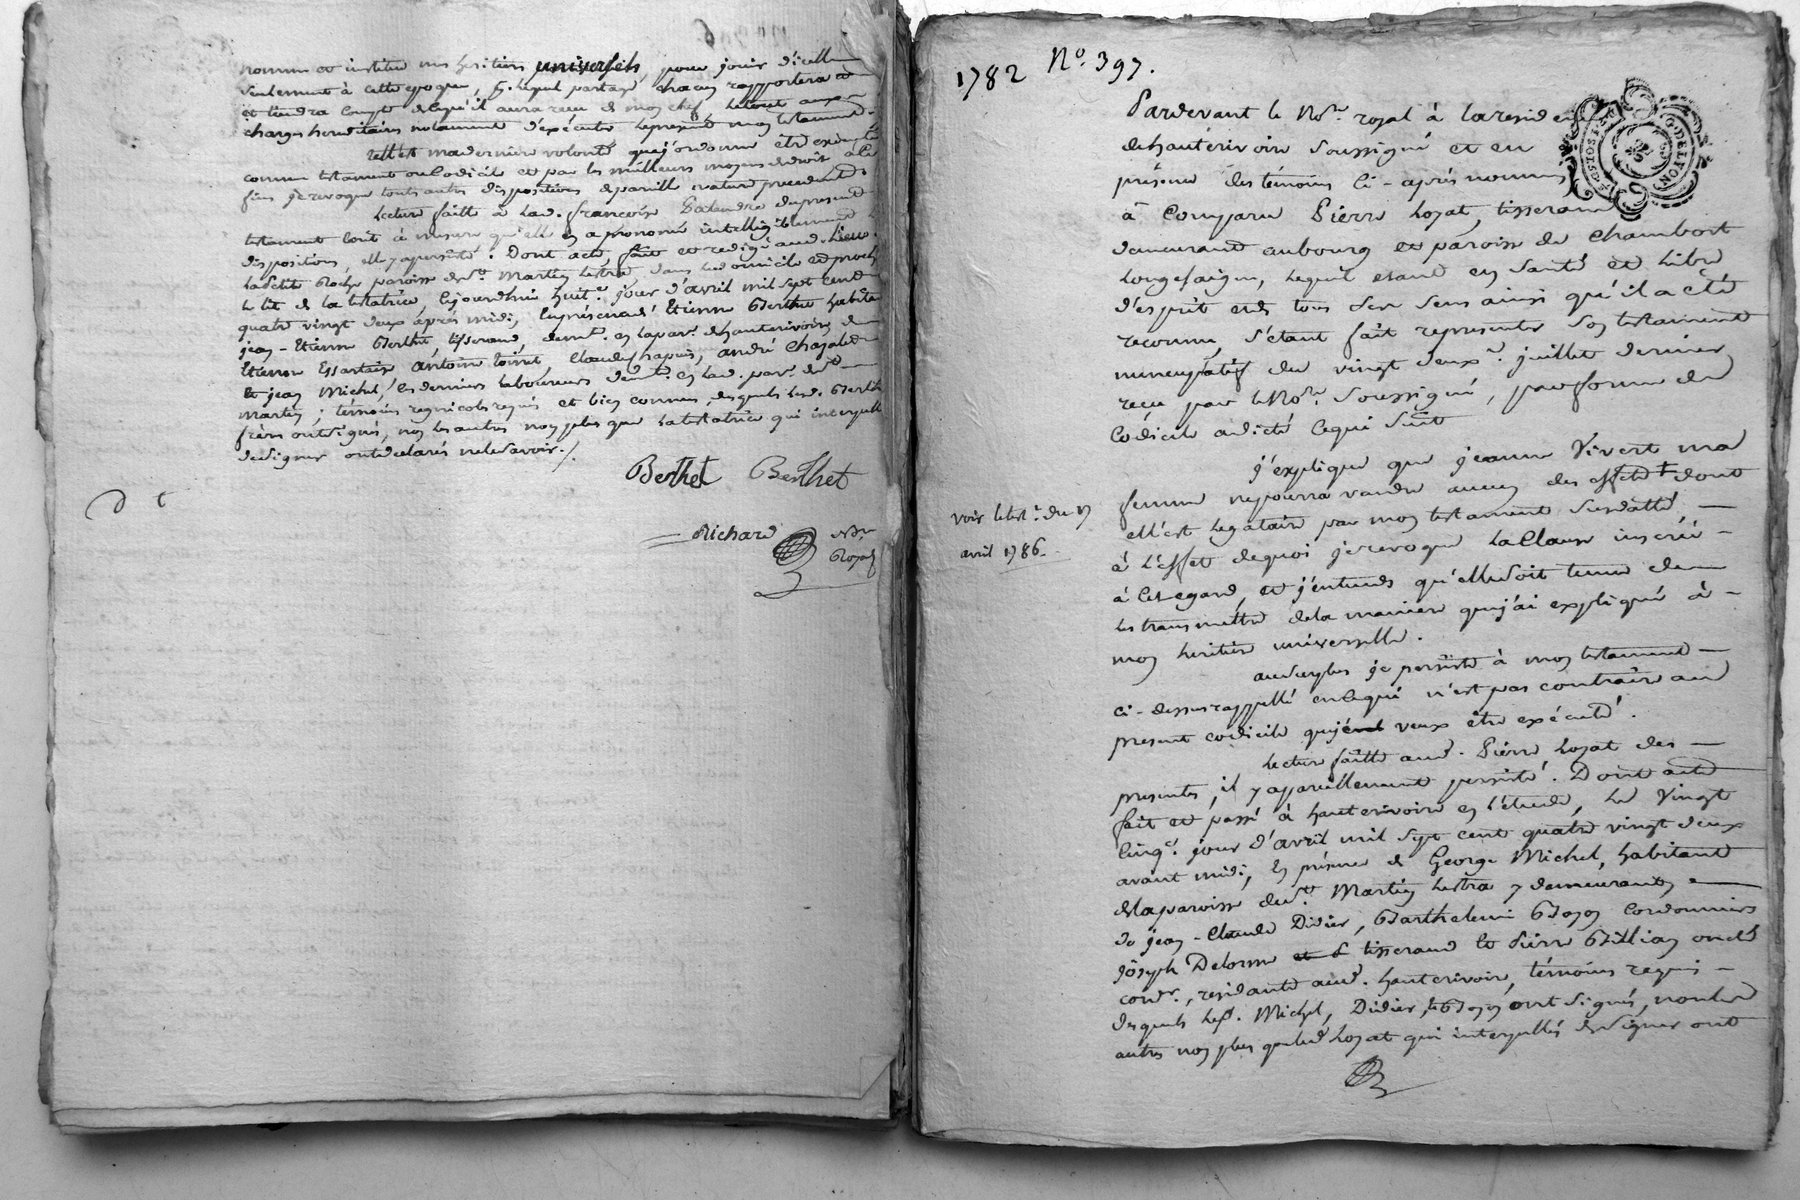 nomme et institue mes heritiers universels, pour jouir d'icelle
seulement à cette epoque, & lequel partage chacun rapportera et
et tiendra compte de ce qu'il aura reçu de mon chef, le tout aux
charges hereditaires notament d'exécuter le present mon testament.
telle est ma derniere volonté que j'ordonne être executée
comme testament ou codicile et par les meilleurs moyens de droit à ces
fins je revoque touts autres dispositions de pareille nature precedentes
Lecture faitte à lad. françoise du present
testament tout à mesure qu'elle en a prononcé intelligiblement les
dispositions, elle y a persisté. Dont acte, fait et redigé aud. lieu
paroisse de St. Martin lestra, dans le domicile et proche
le lit de la testatrice, cejourdhui huit.e jour d'avril mil sept cent
quatre vingt deux après midi, en présence d'Etienne Berthet habitant
jean-Etienne Berthet, tisserand, demt. en la par. d'hauterivoire, de
Etienne Essartaix, antoine Claude chapuis, andré
& jean Michel, ces derniers laboureurs demt. en lad. par. de St.
martin, témoins regnicoles requis et bien connus, desquels lesd. Berthet
frères ont signé, non les autres non plus que la testatrice qui interpellés
de signer ont declarés ne le savoir./.
Berthet Berthet
Richard Nore
Royal
1782 No. 397.
Pardevant le Nore. royal à la residence
de hauterivoire soussigné et en
présence des témoins ci-après nommés
à comparu Pierre Lozat, tisserand
demeurant au bourg et paroisse de Chambost
Longessaigne, lequel etant en santé et libre
d'esprit et de tous ses sens ainsi qu'il a été
reconnu, s'étant fait representer son testament
nuncupatif du vingt deuxe. juillet dernier
reçu par le Nore. soussigné, par forme de
codicile a dicté ce qui suit
j'explique que jeanne Vivert ma
femme ne pourra vendre aucun des effets dont
voir le test. du
ell'est legataire par mon testament susdatté,
avril 1786.
à l'effet de quoi je revoque la clause inserée
à cet egard, et j'entends qu'elle soit tenue de
les transmettre de la maniere que j'ai expliqué à
mon heritiere universelle.
au surplus je persiste à mon testament
ci-dessus rappellé en ce qui n'est pas contraire au
present codicile que je veux être exécuté.
Lecture faitte aud. Pierre Lozat des
presentes, il y a pareillement persisté. Dont acte
fait et passé à hauterivoire en l'étude, le vingt
cinqe. jour d'avril mil sept cent quatre vingt deux
avant midi, en présence de George Michel, habitant
de la paroisse de St. Martin lestra y demeurant,
de jean-Claude Didier, Barthelemi cordonniers
joseph Delorme tisserand & Pierre Billian
cordr., residants aud. hauterivoire, témoins requis
desquels lesd. Michel, Didier, & ont signés, non les
autres non plus que led. Lozat qui interpellés de signer ont